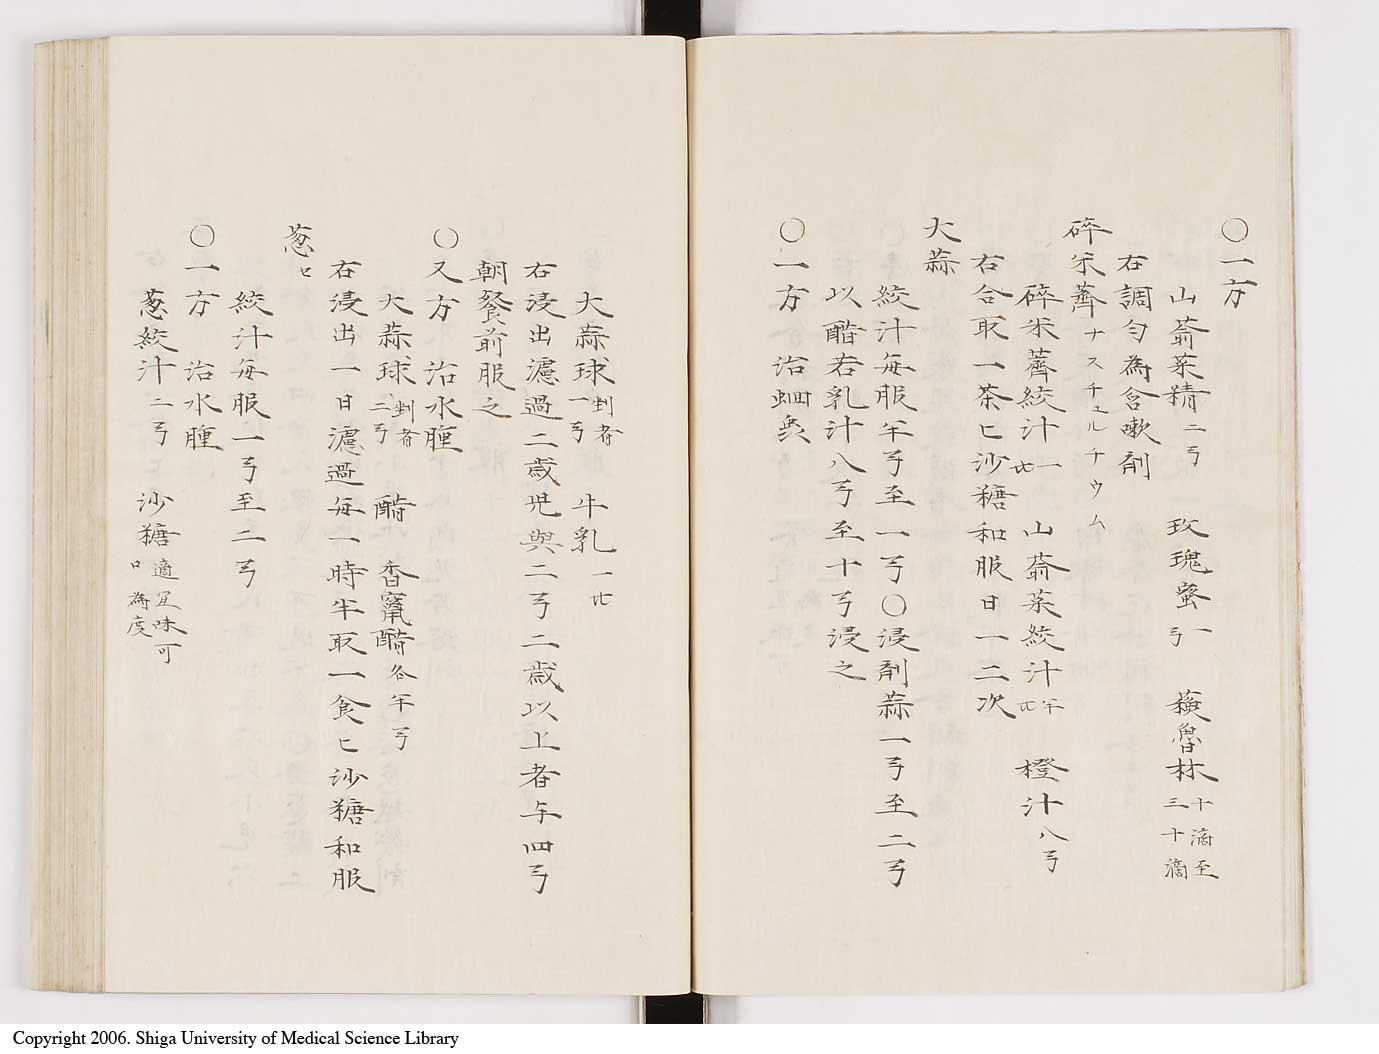 〇一方
山葵菜精二弓 玫瑰蜜一弓 蘹魯林十滴至三十滴
右調勻為含嗽剤
碎米薺ナスチユルチウム
碎米薺絞汁一 山葵菜絞汁半 橙汁八弓
右合取一茶匕沙糖和服日一二次
大蒜
絞汁每服半弓至一弓〇浸剤蒜一弓至二弓
以醋若乳汁八弓至十弓浸之
〇一方 治蛔
大蒜球剉者一弓 牛乳一
右浸出濾過二歳児與二弓二歳以上者与四弓
朝餐前服之
〇又方 治水腫
大蒜球剉者二弓 醋 香竄醋各半弓
右浸出一日濾過每一時半取一食匕沙糖和服
葱
絞汁每服一弓至二弓
〇一方 治水腫
葱絞汁二弓 沙糖適宜味可口為度
Copyright 2006. Shiga University of Medical Science Library